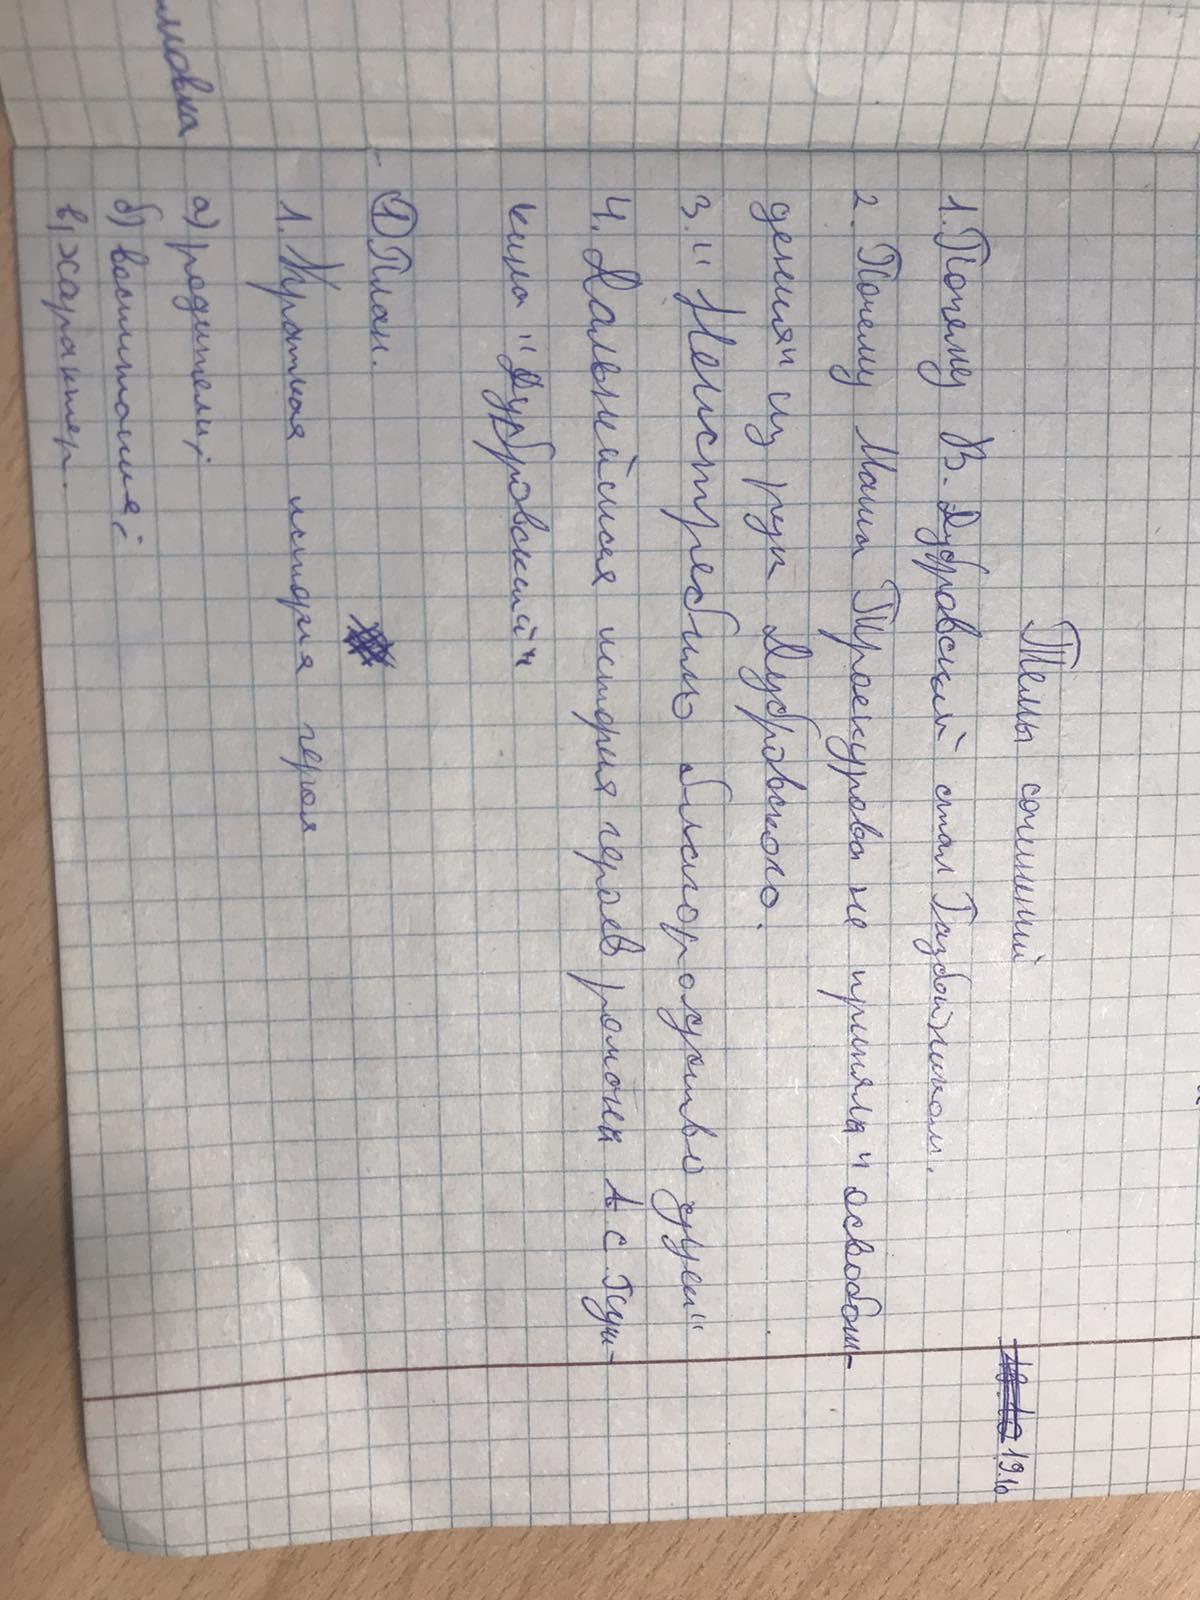 19.10
Темы сочинений
1. Почему В. Дубровский стал Разбойником.
2. Почему Маша Троекурова не приняла "освобож-
дения" из рук Дубровского.
3. "Не истребить благородство души"
4. Дальнейшая история героев романа А С. Пуш-
кина "Дубровский"
① План.
1. Краткая история героя
а) родители;
б) воспитание;
в) характер.